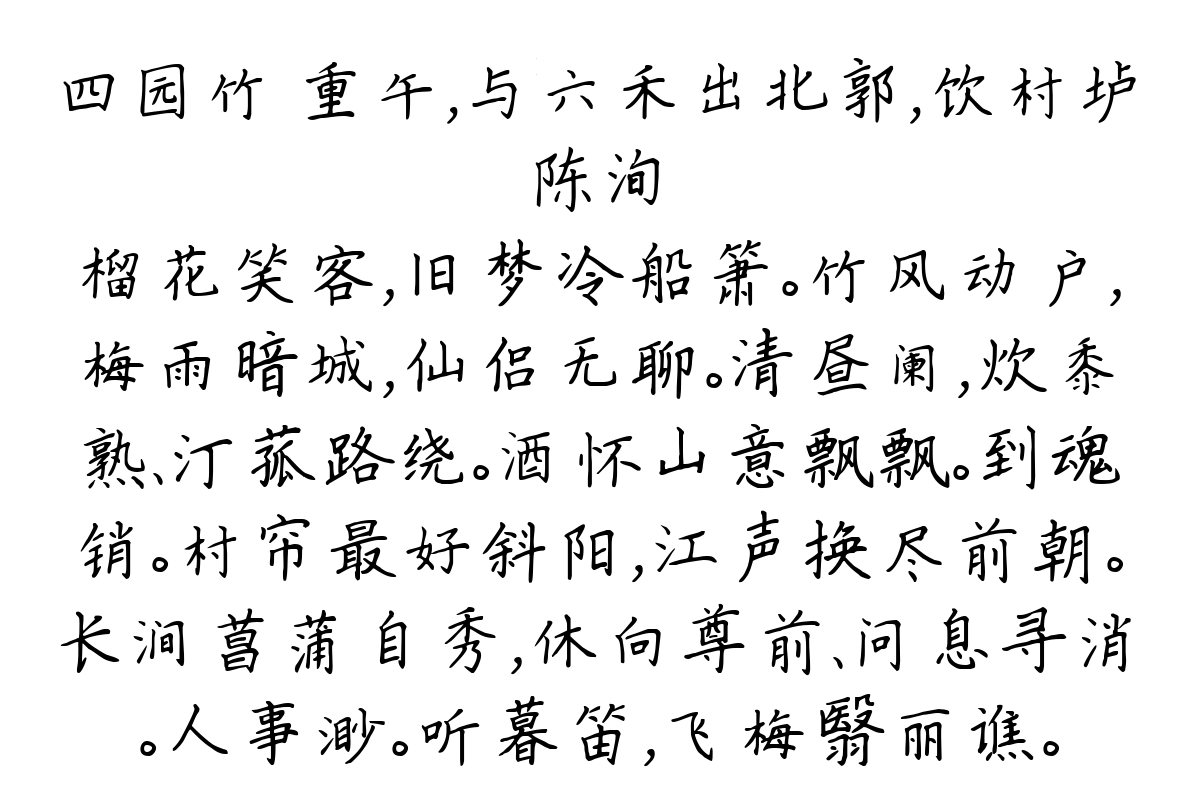 四园竹 重午,与六禾出北郭,饮村垆
陈洵
榴花笑客,旧梦冷船箫。竹风动户,
梅雨暗城,仙侣无聊。清昼阑,炊黍
熟、汀菰路绕。酒怀山意飘飘。到魂
销。村帘最好斜阳,江声换尽前朝。
长涧菖蒲自秀,休向尊前、问息寻消
。人事渺。听暮笛,飞梅翳丽谯。